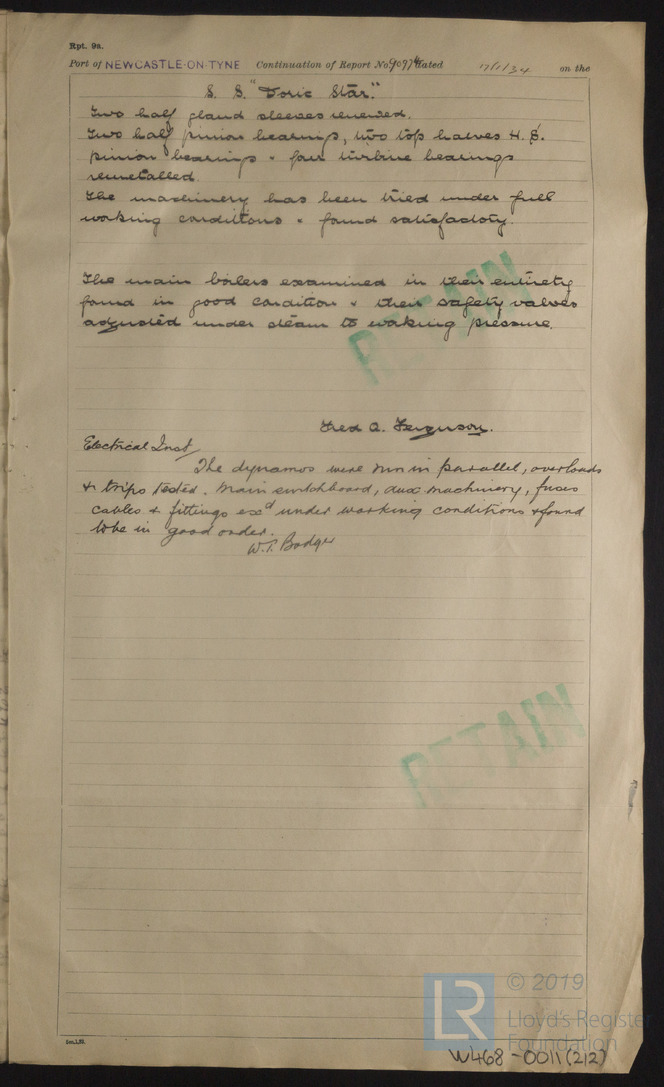 Rpt. 9a.
Port of NEWCASTLE-ON-TYNE Continuation of Report No 90974 dated 17/1/34 on the
S. S. "Doric Star."
Two half gland sleeves renewed.
Two half pinion bearings, two top halves H.S.
pinion bearings & four turbine bearings
remetalled.
The machinery has been tried under full
working conditions & found satisfactory.
The main boilers examined in their entirety
found in good condition & their safety valves
adjusted under steam to working pressure.
Fred A. Ferguson.
Electrical Inst
The dynamos were run in parallel, overloads
& trips tested. Main switchboard, aux machinery, fuses
cables & fittings exd under working conditions & found
to be in good order.
W.T. Badger
RETAIN
RETAIN
LR
© 2019
Lloyd's Register
Foundation
W468-0011(2/2)